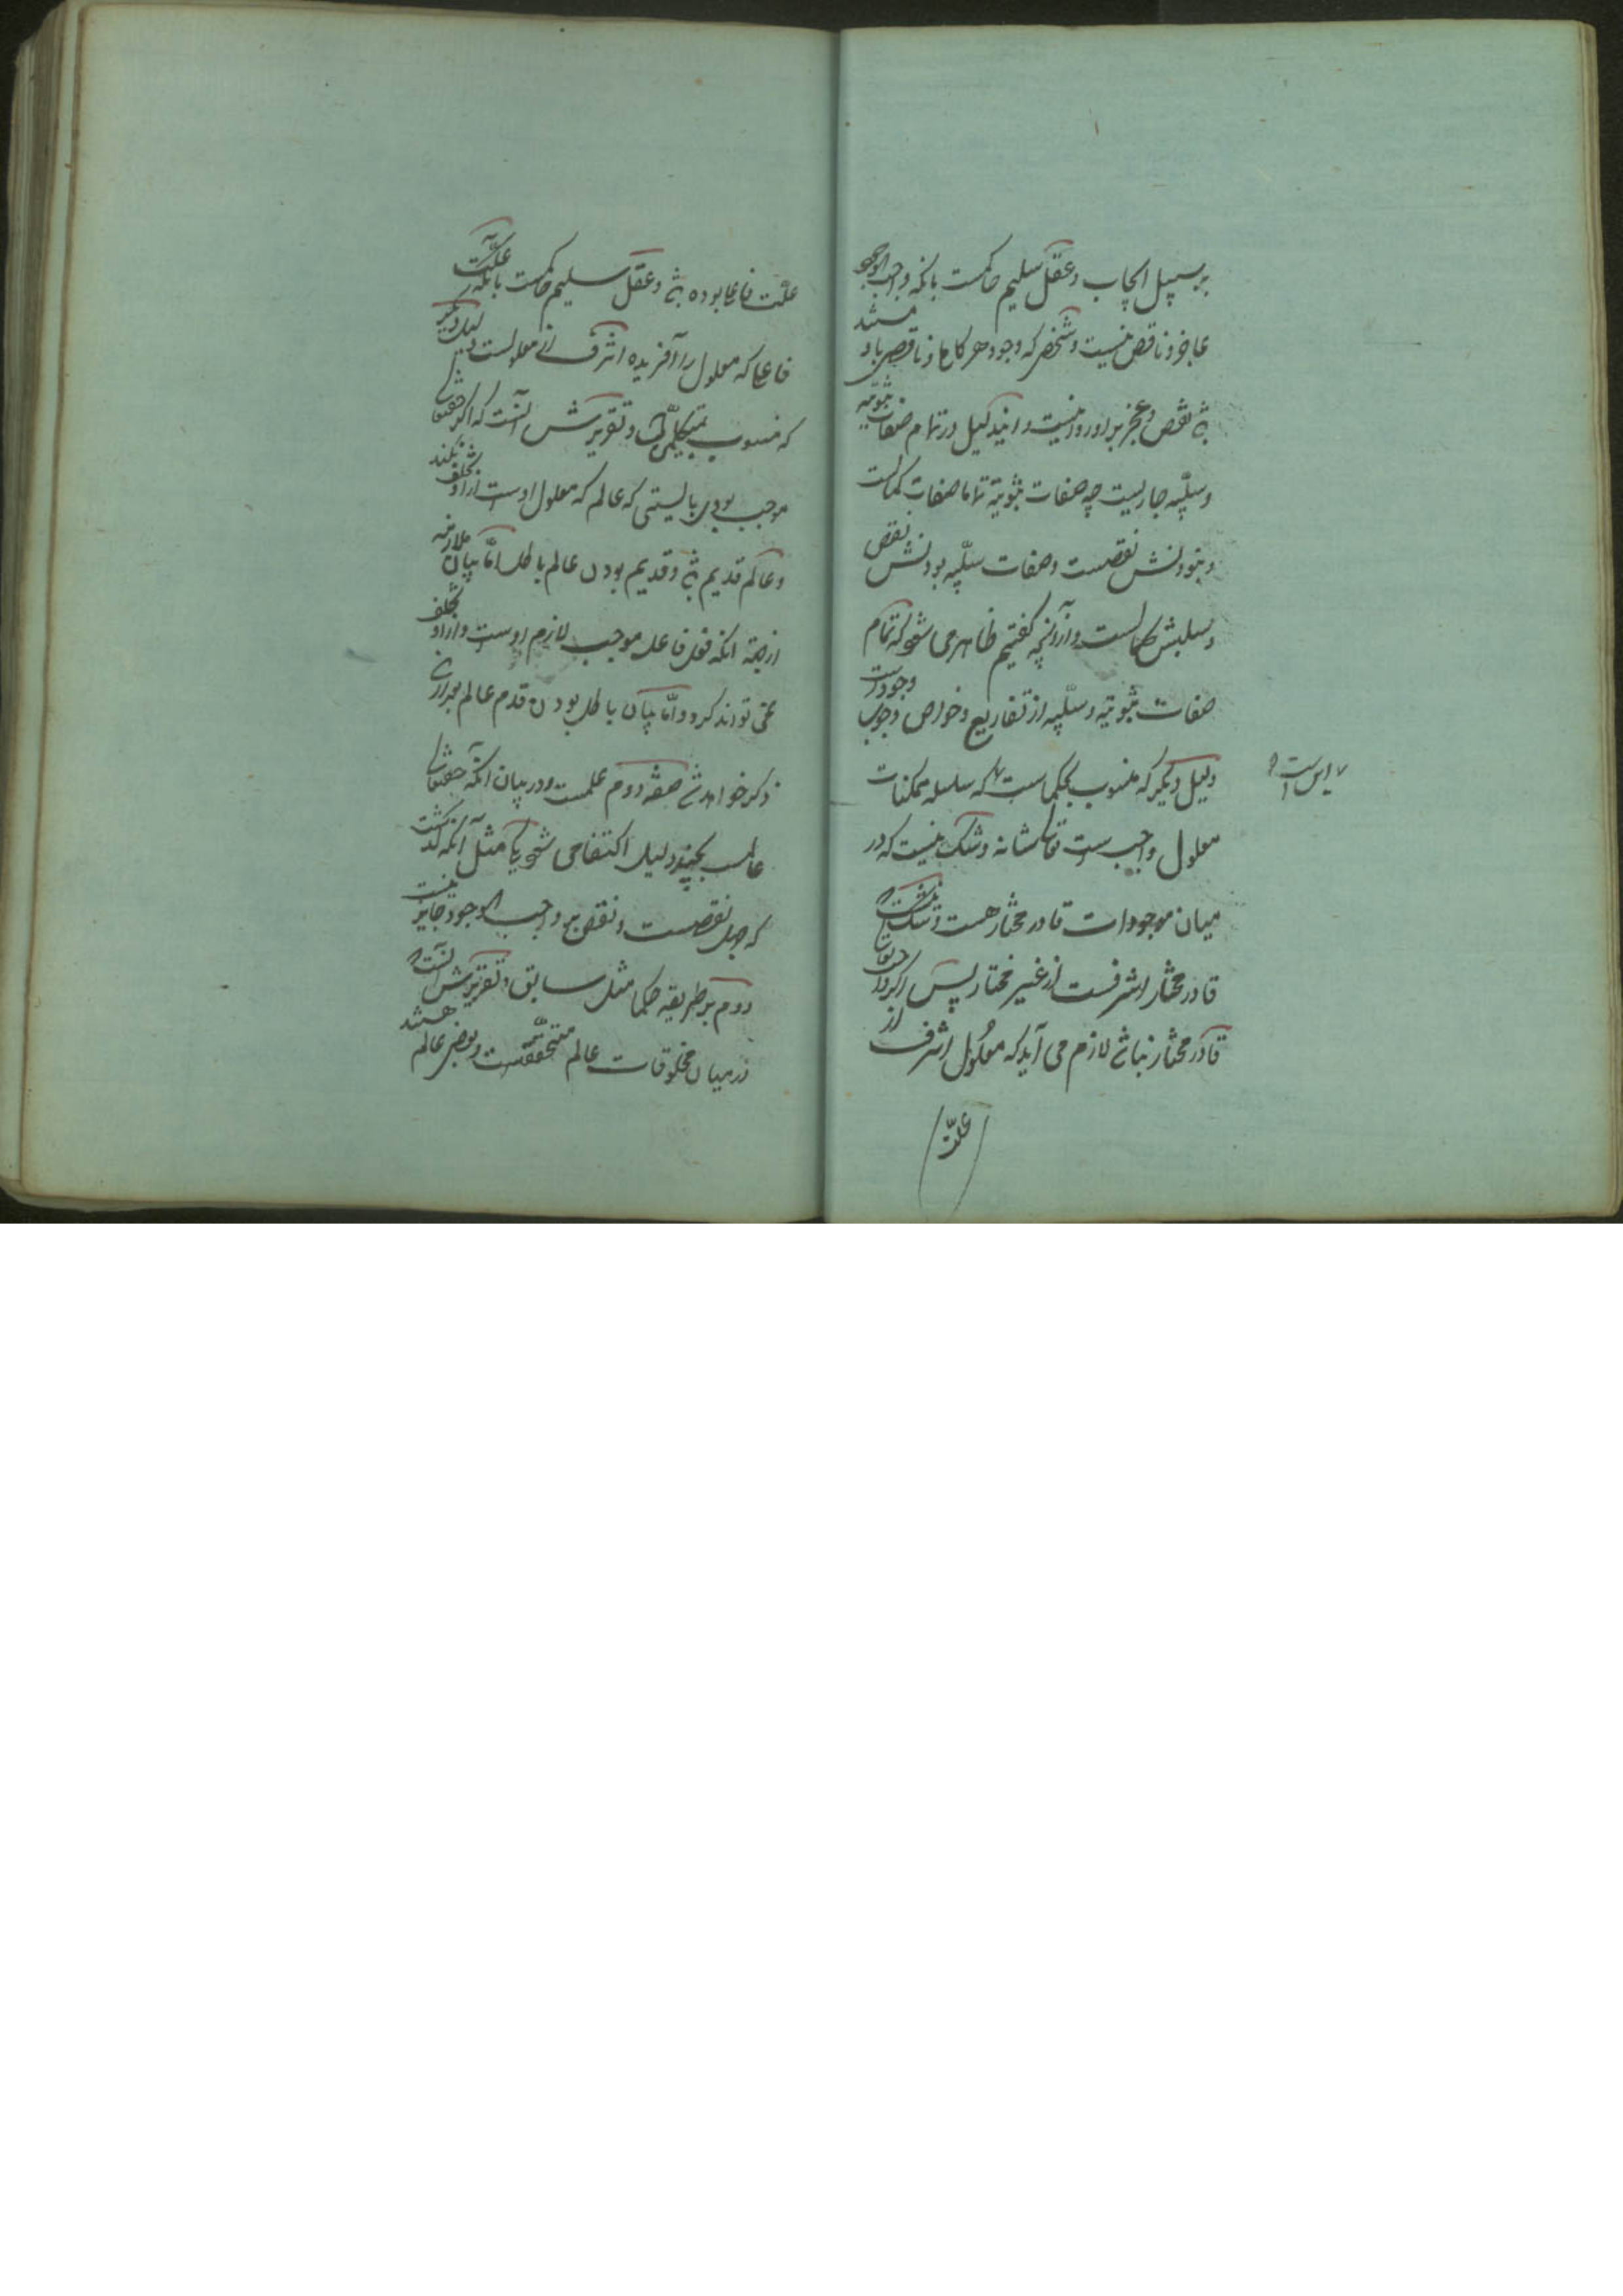 بر سبیل ایجاب و عقل سلیم حاکمست بانکه واجب الوجود
عاجز و ناقص نیست و شخصی که وجود هر کامل و ناقص باو مستند
باشد نقص و عجز بر او روا نیست و این دلیل در تمام صفات ثبوتیه
و سلبیه جاریست چه صفات ثبوتیه تماما صفات کمالست
و نبودنش نقصست و صفات سلبیه بودنش نقص
و سلبش کمالست و از آنچه گفتیم ظاهر می شود که تمام
صفات ثبوتیه و سلبیه از تفاریع و خواص وجوب وجودست
دلیل دیگر که منسوب بحکماست که سلسله ممکنات
این است
معلول واجب است تعالی شانه و شک نیست که در
میان موجودات قادر مختار هست و شک نیست که
قادر مختار اشرفست از غیر مختار پس اگر واجب تعالی
قادر مختار نباشد لازم می آید که معلول اشرف از
علت
علت فاعلی بوده باشد و عقل سلیم حاکمست بانکه علت
فاعلی که معلول را آفریده اشرف از معلولست دلیل دیگر
که منسوب بمتکلمین است و تقریرش آنست که اگر حقتعالی
موجب بودی بایستی که عالم که معلول اوست از او تخلف نکند
و عالم قدیم باشد و قدیم بودن عالم باطل اما بیان ملازمه
از جهة انکه فعل فاعل موجب لازم اوست و از او تخلف
نمی تواند کرد و اما بیان باطل بودن قدم عالم بعد ازین
ذکر خواهد شد صفة دوم علمست و در بیان انکه حقتعالی
عالمست بچند دلیل اکتفا می شود یکی مثل آنکه گذشت
که جهل نقصست و نقص بر واجب الوجود جایز نیست
دوم بر طریقه حکما مثل سابق و تقریرش آنست که
در میان مخلوقات عالم متحققست و بعضی عالم هستند